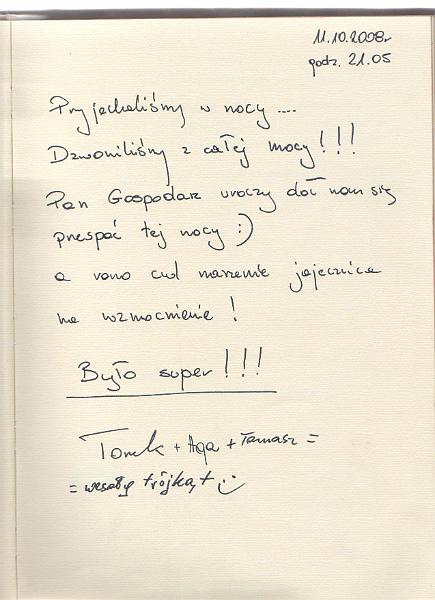 11.10.2008r
godz. 21.05
Przyjechaliśmy w nocy ....
Dzwoniliśmy z całej mocy!!!
Pan Gospodarz uroczy dał nam się
przespać tej nocy :)
a rano cud marzenie jajecznica
na wzmocnienie!
Było super!!!
Tomek + Aga + Tamasz =
= wesoły trójkąt :)